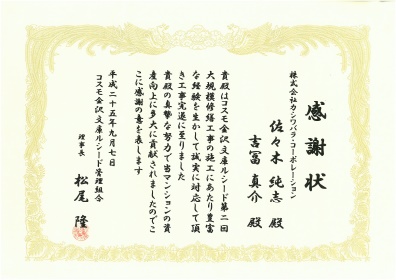 感謝状
株式会社カシワバラ・コーポレーション
佐々木 純志 殿
吉冨 真介 殿
貴殿はコスモ金沢文庫ルシード第二回
大規模修繕工事の施工にあたり豊富
な経験を生かして誠実に対応して頂
き工事完遂に至りました
貴殿の真摯な努力で当マンションの資
産向上に多大に貢献されましたのでこ
こに感謝の意を表します
平成二十五年九月七日
コスモ金沢文庫ルシード管理組合
理事長 松尾 隆